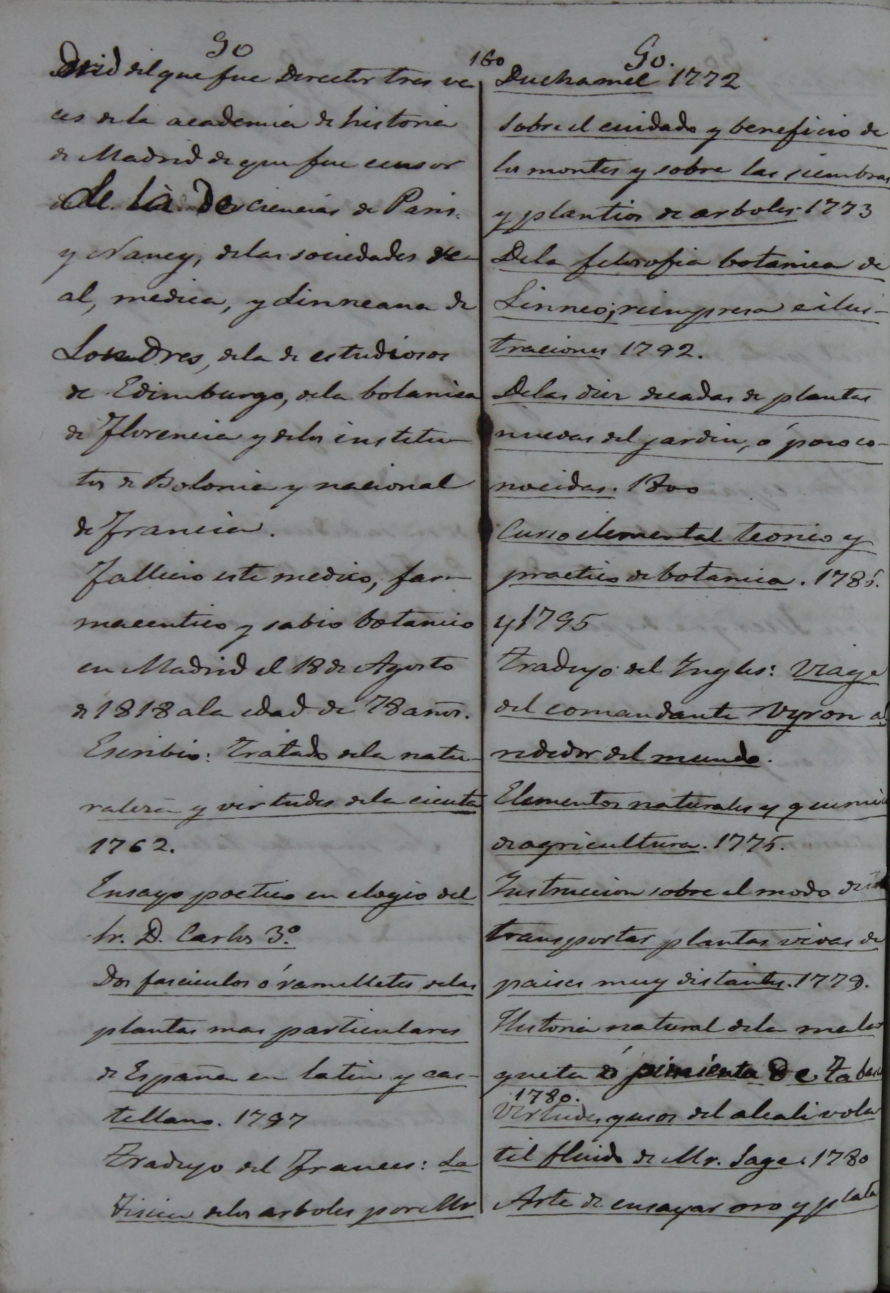 Go
drid del que fue Director tres ve
ces de la academia de historia
de Madrid de que fue censor
de la de ciencias de Paris
y Nancy, de las sociedades re
al, medica, y Linneana de
Londres, de la de estudiosos
de Edimburgo, de la botanica
de Florencia y de los institu
tos de Bolonia y nacional
de Francia.
Fallecio este medico, far-
maceutico y sabio botanico
en Madrid el 18 de Agosto
de 1818 a la edad de 78 años.
Escribio: Tratado de la natu-
raleza y virtudes de la cicuta
1762.
Ensayo poetico en elogio del
Sr. D. Carlos 3.º
Dos fasciculos ó ramilletes de las
plantas mas particulares
de España en latin y cas-
tellano. 1797
Tradujo del Frances: La
Fisica de los arboles por Mr
160
Go.
Duchamel 1772
Sobre el cuidado y beneficio de
los montes y sobre las siembras
y plantios de arboles 1773
De la filosofia botanica de
Linneo; reimpresa e ilus-
traciones 1792.
De las diez decadas de plantas
nuevas del jardin, ó poco co-
nocidas. 1800
Curso elemental teorico y
practico de botanica. 1785.
y 1795
Tradujo del Ingles: Viage
del comandante Vyron al
rededor del mundo.
Elementos naturales y quimi
de agricultura. 1775.
Instruccion sobre el modo de
transportar plantas vivas de
paises muy distantes. 1779.
Historia natural de la mala
gueta ó pimienta de Tabas
1780.
Virtudes y usos del alcali vola
til fluido de Mr. Sage. 1780
Arte de ensayar oro y plata